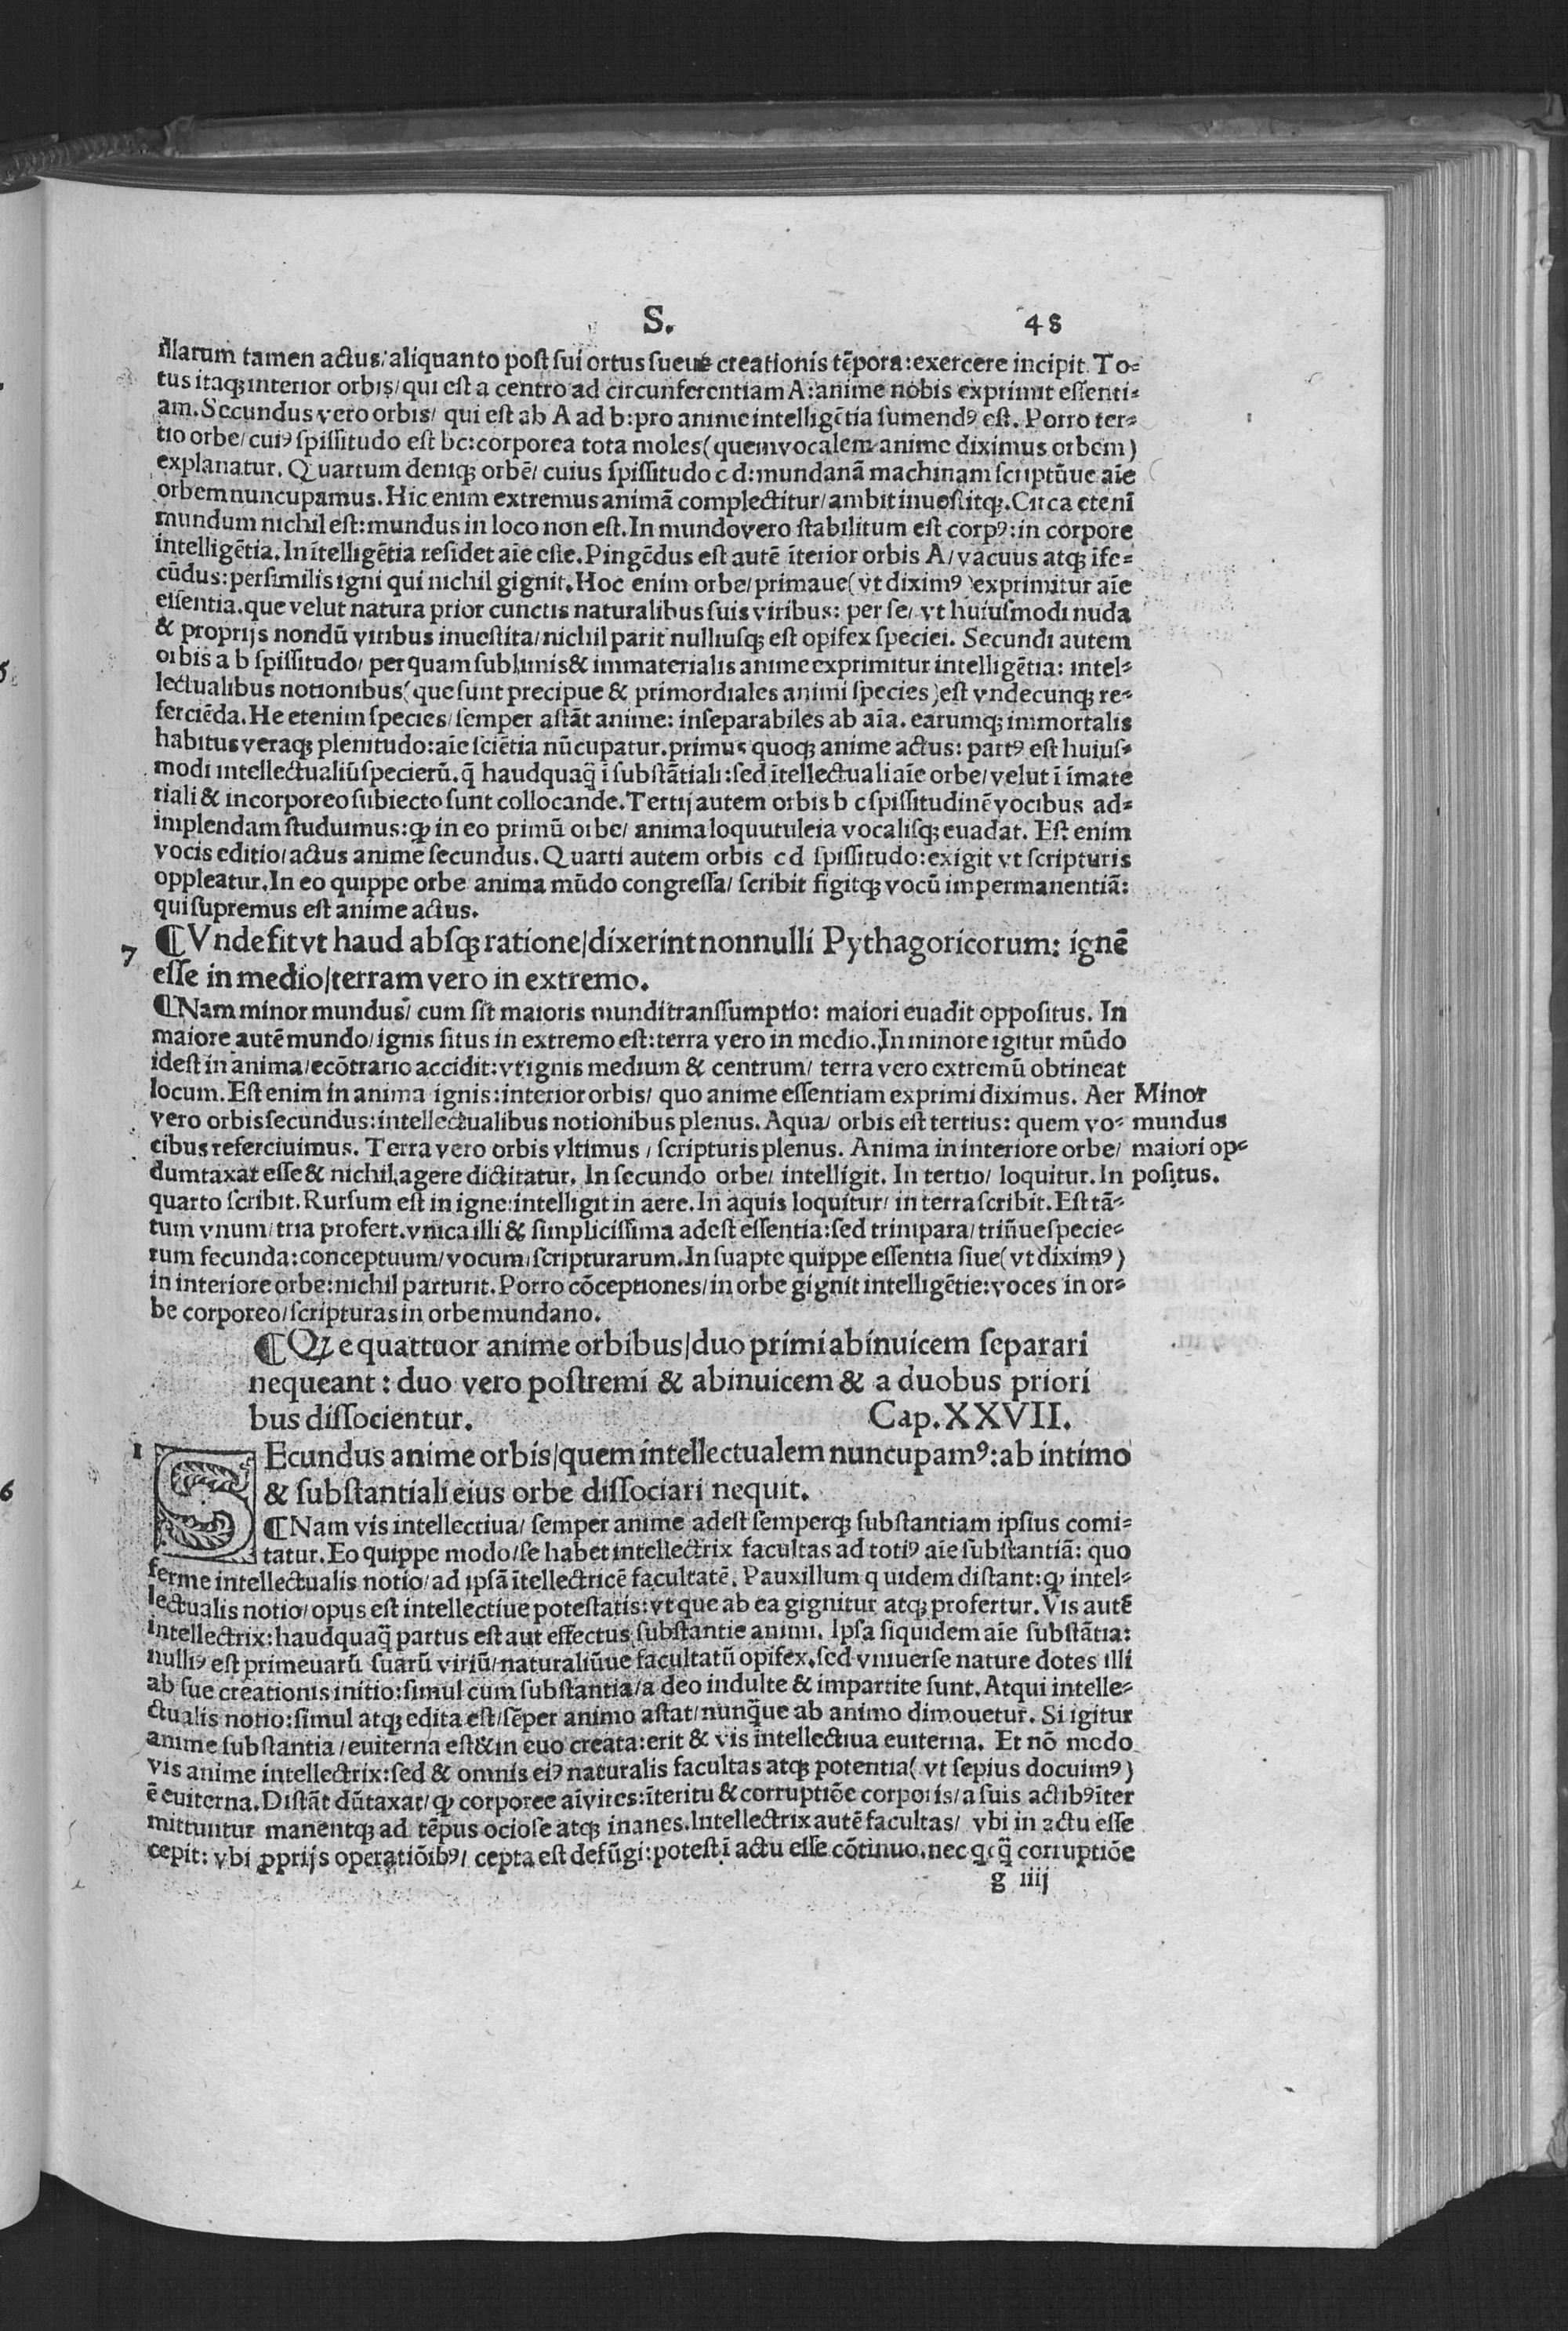 S. 48
illarum tamen actus/ aliquanto post sui ortus sueue creationis tēpora: exercere incipit. To-
tus itaqꝫ interior orbis/ qui est a centro ad circunferentiam A: anime nobis exprimit essenti-
am. Secundus vero orbis/ qui est ab A ad b: pro anime intelligētia sumendꝰ est. Porro ter-
tio orbe/ cuiꝰ spissitudo est bc: corporea tota moles (quem vocalem anime diximus orbem)
explanatur. Quartum deniqꝫ orbē/ cuius spissitudo c d: mundanā machinam scriptūue aīe
orbem nuncupamus. Hic enim extremus animā complectitur/ ambit inuestitqꝫ. Circa etenī
mundum nichil est: mundus in loco non est. In mundo vero stabilitum est corpꝰ: in corpore
intelligētia. In ītelligētia residet aīe esse. Pingēdus est autē īterior orbis A/ vacuus atqꝫ īfe-
cūdus: persimilis igni qui nichil gignit. Hoc enim orbe/ primaue (vt diximꝰ) exprimitur aīe
essentia. que velut natura prior cunctis naturalibus suis viribus: per se/ vt huiusmodi nuda
& proprijs nondū viribus inuestita/ nichil parit nulliusqꝫ est opifex speciei. Secundi autem
orbis a b spissitudo/ per quam sublimis & immaterialis anime exprimitur intelligētia: intel-
lectualibus notionibus (que sunt precipue & primordiales animi species) est vndecunqꝫ re-
ferciēda. He etenim species/ semper astāt anime: inseparabiles ab aīa. earumqꝫ immortalis
habitus veraqꝫ plenitudo: aīe sciētia nūcupatur. primus quoqꝫ anime actus: partꝰ est huius-
modi intellectualiū specierū. q̄ haudquaq̄ ī substātiali: sed ītellectuali aīe orbe/ velut ī īmate
riali & incorporeo subiecto sunt collocande. Tertij autem orbis b c spissitudinē vocibus ad-
implendam studuimus: ꝙ in eo primū orbe/ anima loquutuleia vocalisqꝫ euadat. Est enim
vocis editio/ actus anime secundus. Quarti autem orbis c d spissitudo: exigit vt scripturis
oppleatur. In eo quippe orbe anima mūdo congressa/ scribit figitqꝫ vocū impermanentiā:
qui supremus est anime actus.
7 ¶Vnde fit vt haud absqꝫ ratione/ dixerint nonnulli Pythagoricorum: ignē
esse in medio/ terram vero in extremo.
¶Nam minor mundus/ cum sit maioris mundi transsumptio: maiori euadit oppositus. In
maiore autē mundo/ ignis situs in extremo est: terra vero in medio. In minore igitur mūdo
idest in anima/ ecōtrario accidit: vt ignis medium & centrum/ terra vero extremū obtineat
locum. Est enim in anima ignis: interior orbis/ quo anime essentiam exprimi diximus. Aer Minor
vero orbis secundus: intellectualibus notionibus plenus. Aqua/ orbis est tertius: quem vo- mundus
cibus referciuimus. Terra vero orbis vltimus/ scripturis plenus. Anima in interiore orbe/ maiori op-
dumtaxat esse & nichil agere dictitatur. In secundo orbe/ intelligit. In tertio/ loquitur. In positus.
quarto scribit. Rursum est in igne: intelligit in aere. In aquis loquitur/ in terra scribit. Est tā-
tum vnum/ tria profert. vnica illi & simplicissima adest essentia: sed trinipara/ triūue specie-
rum fecunda: conceptuum/ vocum/ scripturarum. In suapte quippe essentia siue (vt diximꝰ)
in interiore orbe: nichil parturit. Porro cōceptiones/ in orbe gignit intelligētie: voces in or-
be corporeo/ scripturas in orbe mundano.
¶Q̨ e quattuor anime orbibus/ duo primi abinuicem separari
nequeant: duo vero postremi & abinuicem & a duobus priori
bus dissocientur. Cap. XXVII.
1 SEcundus anime orbis/ quem intellectualem nuncupamꝰ: ab intimo
& substantiali eius orbe dissociari nequit.
¶Nam vis intellectiua/ semper anime adest semperqꝫ substantiam ipsius comi-
tatur. Eo quippe modo/ se habet intellectrix facultas ad totiꝰ aīe substantiā: quo
ferme intellectualis notio/ ad ipsā ītellectricē facultatē. Pauxillum quidem distant: ꝙ intel-
lectualis notio/ opus est intellectiue potestatis: vt que ab ea gignitur atqꝫ profertur. Vis autē
intellectrix: haudquaq̄ partus est aut effectus substantie animi. Ipsa siquidem aīe substātia:
nulliꝰ est primeuarū suarū viriū/ naturaliūue facultatū opifex. sed vniuerse nature dotes illi
ab sue creationis initio: simul cum substantia/ a deo indulte & impartite sunt. Atqui intelle-
ctualis notio: simul atqꝫ edita est/ sēper animo astat/ nunq̄ue ab animo dimouetur. Si igitur
anime substantia/ euiterna est & in euo creata: erit & vis intellectiua euiterna. Et nō modo
vis anime intellectrix: sed & omnis eiꝰ naturalis facultas atqꝫ potentia (vt sepius docuimꝰ)
ē euiterna. Distāt dūtaxat/ ꝙ corporee aī vires: īteritu & corruptiōe corporis/ a suis actibꝰ īter
mittuntur manentqꝫ ad tēpus ociose atqꝫ inanes. Intellectrix autē facultas/ vbi in actu esse
cepit: vbi ꝓprijs operatiōibꝰ/ cepta est defūgi: potest ī actu esse cōtinuo. nec corruptiōe
g iiij